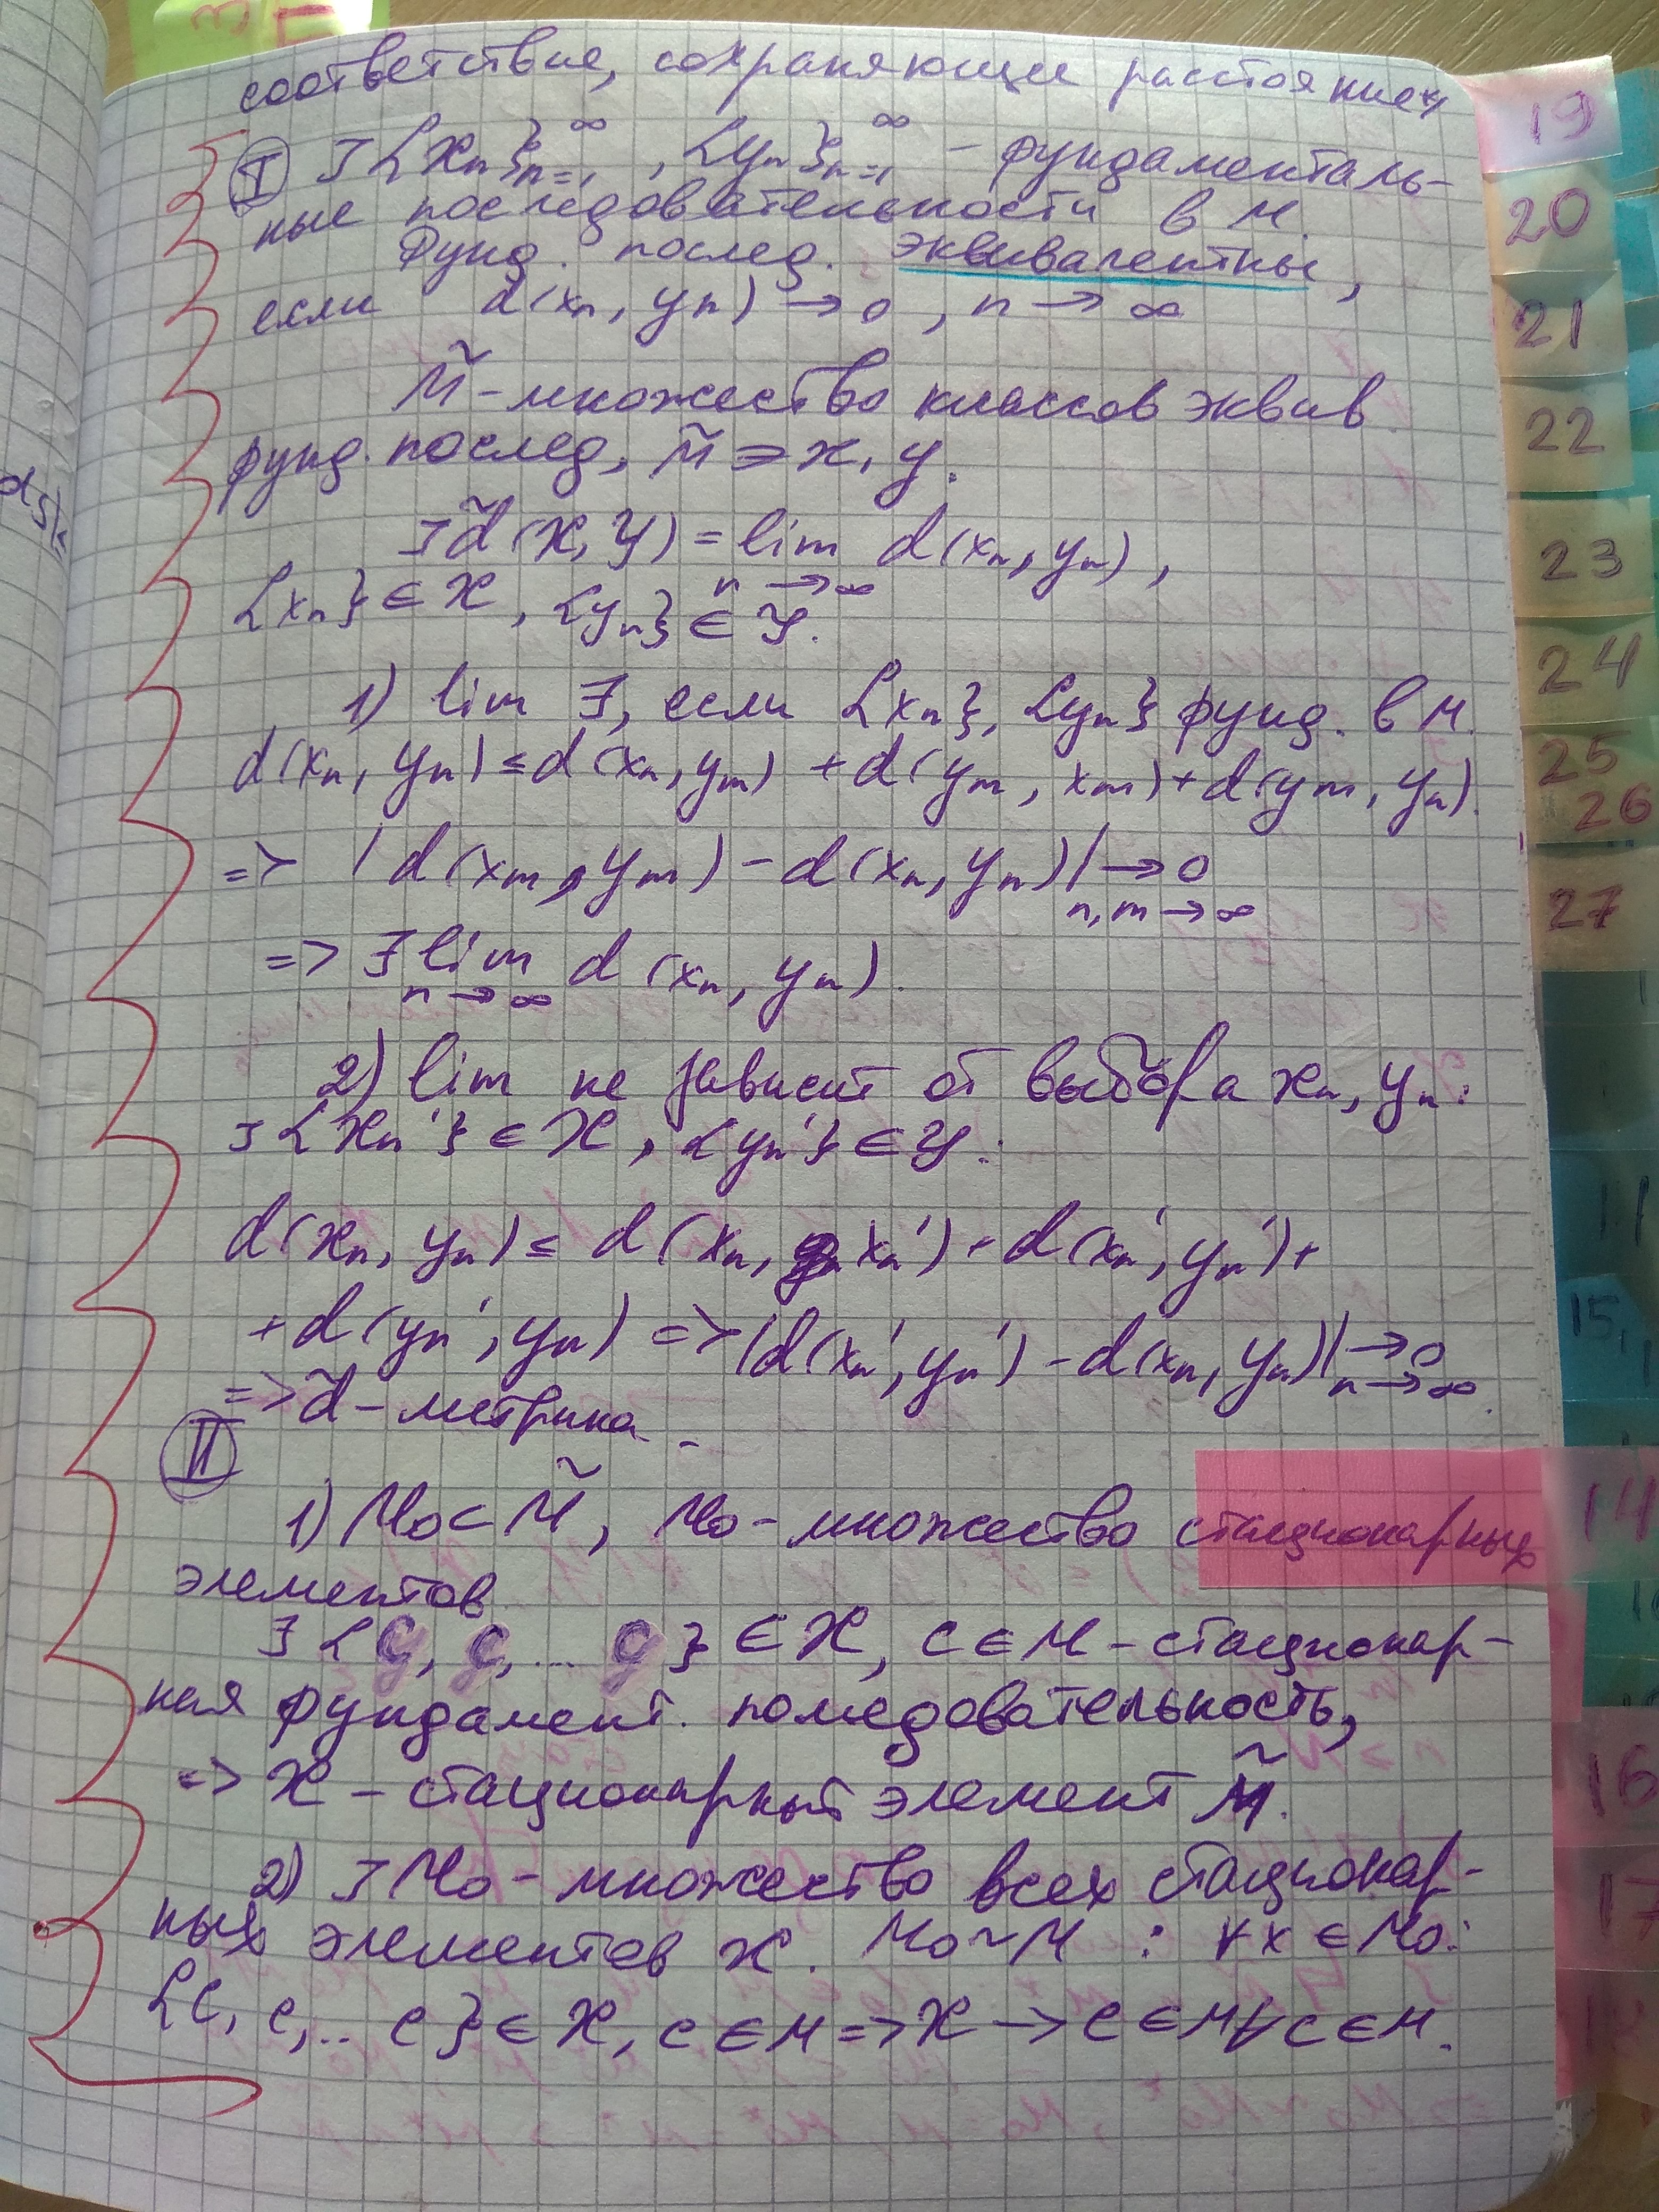 соответствие, сохраняющее расстояние
19
Ⅰ ∃ {xₙ}ₙ₌₁^∞, {yₙ}ₙ₌₁^∞ – фундаменталь-
ные последовательности в M.
20
Фунд. послед. эквивалентны,
если d(xₙ, yₙ) → 0, n → ∞
21
M̃ – множество классов эквив.
22
фунд. послед, M̃ ∋ x, y.
∃ d̃(X, Y) = lim d(xₙ, yₙ),
n → ∞
23
{xₙ} ∈ X, {yₙ} ∈ Y.
24
1) lim ∃, если {xₙ}, {yₙ} фунд. в M.
d(xₙ, yₙ) ≤ d(xₙ, yₘ) + d(yₘ, xₘ) + d(yₘ, yₙ).
25
26
=> |d(xₘ, yₘ) – d(xₙ, yₙ)| → 0
n, m → ∞
27
=> ∃ lim d(xₙ, yₙ).
n → ∞
2) lim не зависит от выбора xₙ, yₙ:
∃ {xₙ'} ∈ X, {yₙ'} ∈ Y:
11
d(xₙ, yₙ) ≤ d(xₙ, xₙ') + d(xₙ', yₙ') +
+ d(yₙ', yₙ) => |d(xₙ', yₙ') – d(xₙ, yₙ)| → 0
n → ∞.
15
=> d̃ – метрика.
Ⅱ
1) M₀ ⊂ M̃, M₀ – множество стационарных
14
элементов
∃ {c, c, ... c} ∈ X, c ∈ M – стационар-
ная фундамент. последовательность,
=> X – стационарный элемент M̃.
16
2) ∃ M₀ – множество всех стационар-
17
ных элементов X. M₀ ~ M : ∀ x ∈ M₀:
{c, c, .. c} ∈ X, c ∈ M => X → c ∈ M ∀ c ∈ M.
18